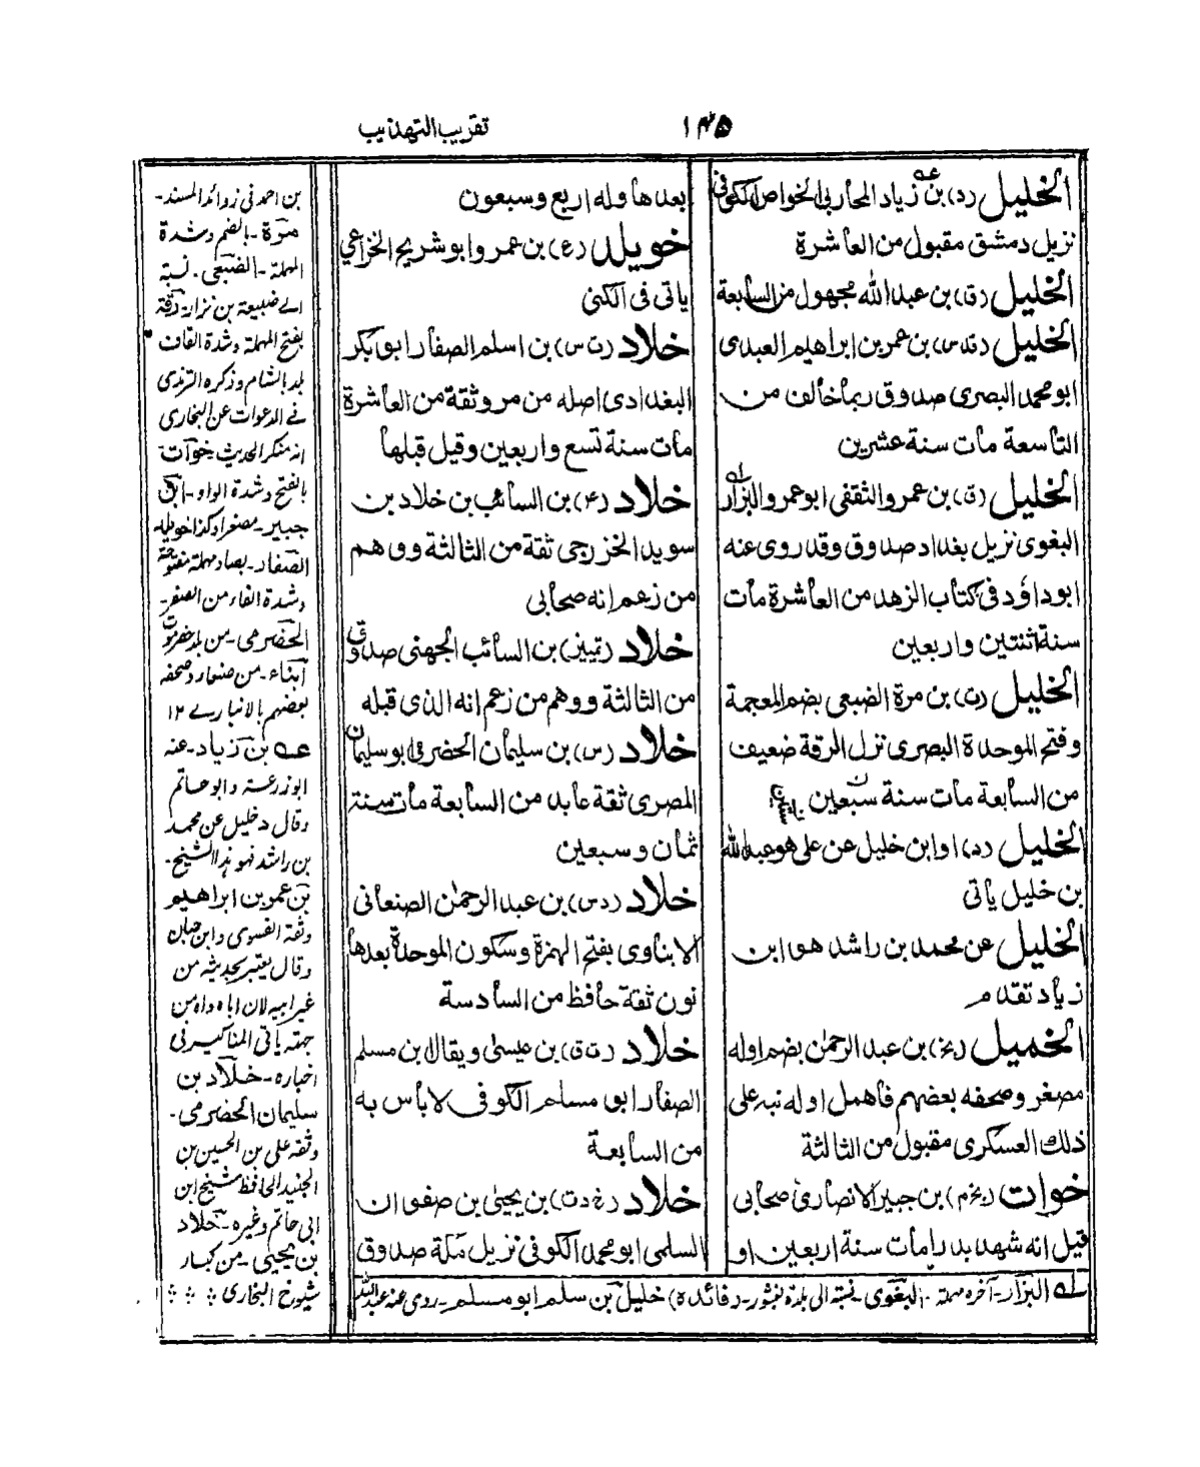 تقريب التهذيب
١٤٥
الخليل (د) بن زياد المحاربي الخواص الكوفي
نزيل دمشق مقبول من العاشرة
الخليل (ق) بن عبد الله مجهول من السابعة
الخليل (قد س) بن عمر بن ابراهيم العبدى
ابو محمد البصرى صدوق ربما خالف من
التاسعة مات سنة عشرين
الخليل (ق) بن عمرو الثقفى ابو عمرو البزار
البغوى نزيل بغداد صدوق وقد روى عنه
ابو داؤد فى كتاب الزهد من العاشرة مات
سنة اثنتين واربعين
الخليل (ت) بن مرة الضبعى بضم المعجمة
وفتح الموحدة البصرى نزل الرقة ضعيف
من السابعة مات سنة سبعين
الخليل (د) او ابن خليل عن على هو عبد الله
بن خليل ياتى
الخليل عن محمد بن راشد هو ابن
زياد تقدم
الخميل (بخ) بن عبد الرحمن بضم اوله
مصغر وصحفه بعضهم فاهمل اوله نبه على
ذلك العسكرى مقبول من الثالثة
خوات (بخ م) بن جبير الانصارى صحابى
قيل انه شهد بدرا مات سنة اربعين او
بعدها وله اربع وسبعون
خويلد (ع) بن عمرو ابو شريح الخزاعي
ياتى فى الكنى
خلاد (ت س) بن اسلم الصفار ابو بكر
البغدادى اصله من مرو ثقة من العاشرة
مات سنة تسع واربعين وقيل قبلها
خلاد (ع) بن السائب بن خلاد بن
سويد الخزرجى ثقة من الثالثة ووهم
من زعم انه صحابى
خلاد (تمييز) بن السائب الجهنى صدوق
من الثالثة ووهم من زعم انه الذى قبله
خلاد (س) بن سليمان الحضرمى ابو سليمان
المصرى ثقة عابد من السابعة مات سنة
ثمان وسبعين
خلاد (د س) بن عبد الرحمن الصنعانى
الابناوى بفتح الهمزة وسكون الموحدة بعدها
نون ثقة حافظ من السادسة
خلاد (ت ق) بن عيسى ويقال ابن مسلم
الصفار ابو مسلم الكوفى لا بأس به
من السابعة
خلاد (خ د ت) بن يحيى بن صفوان
السلمى ابو محمد الكوفى نزيل مكة صدوق
له البزار - آخره مهملة - البغوى - نسبة الى بلدة بغشور - (فائدة) خليل بن سلم ابو مسلم - روى عنه عبد الله
بن احمد فى زوائد المسند -
مرة - بالضم وشدة
المهملة - الضبعى - نسبة
الے ضبيعة بن نزار - رقة
بفتح المهملة وشدة القاف
بلد بالشام وذكره الترمذى
فے الدعوات عن البخارى
انه منكر الحديث - خوات
بالفتح وشدة الواو - ابن
جبير - مصغرا وكذا خويلد
الصفار - بصاد مهملة مفتوحة
وشدة الفاء من الصفر -
الحضرمى - من بلد حضرموت
ابناء - من صنعاء وصحفه
بعضهم بالانبارے ١٢
عه بن زياد - عنه
ابو زرعة وابو حاتم
وقال دخليل عن محمد
بن راشد فهو هذا الشيخ -
بن عمرو بن ابراهيم
وثقه الفسوى وابن حبان
وقال يعتبر بحديثه من
غير ابيه لان اباه واه من
جهته ياتى المناكير فى
اخباره - خلاد بن
سليمان الحضرمى -
وثقه على بن الحسين بن
الجنيد الحافظ شيخ ابن
ابى حاتم وغيره - خلاد
بن يحيى - من كبار
شيوخ البخارى